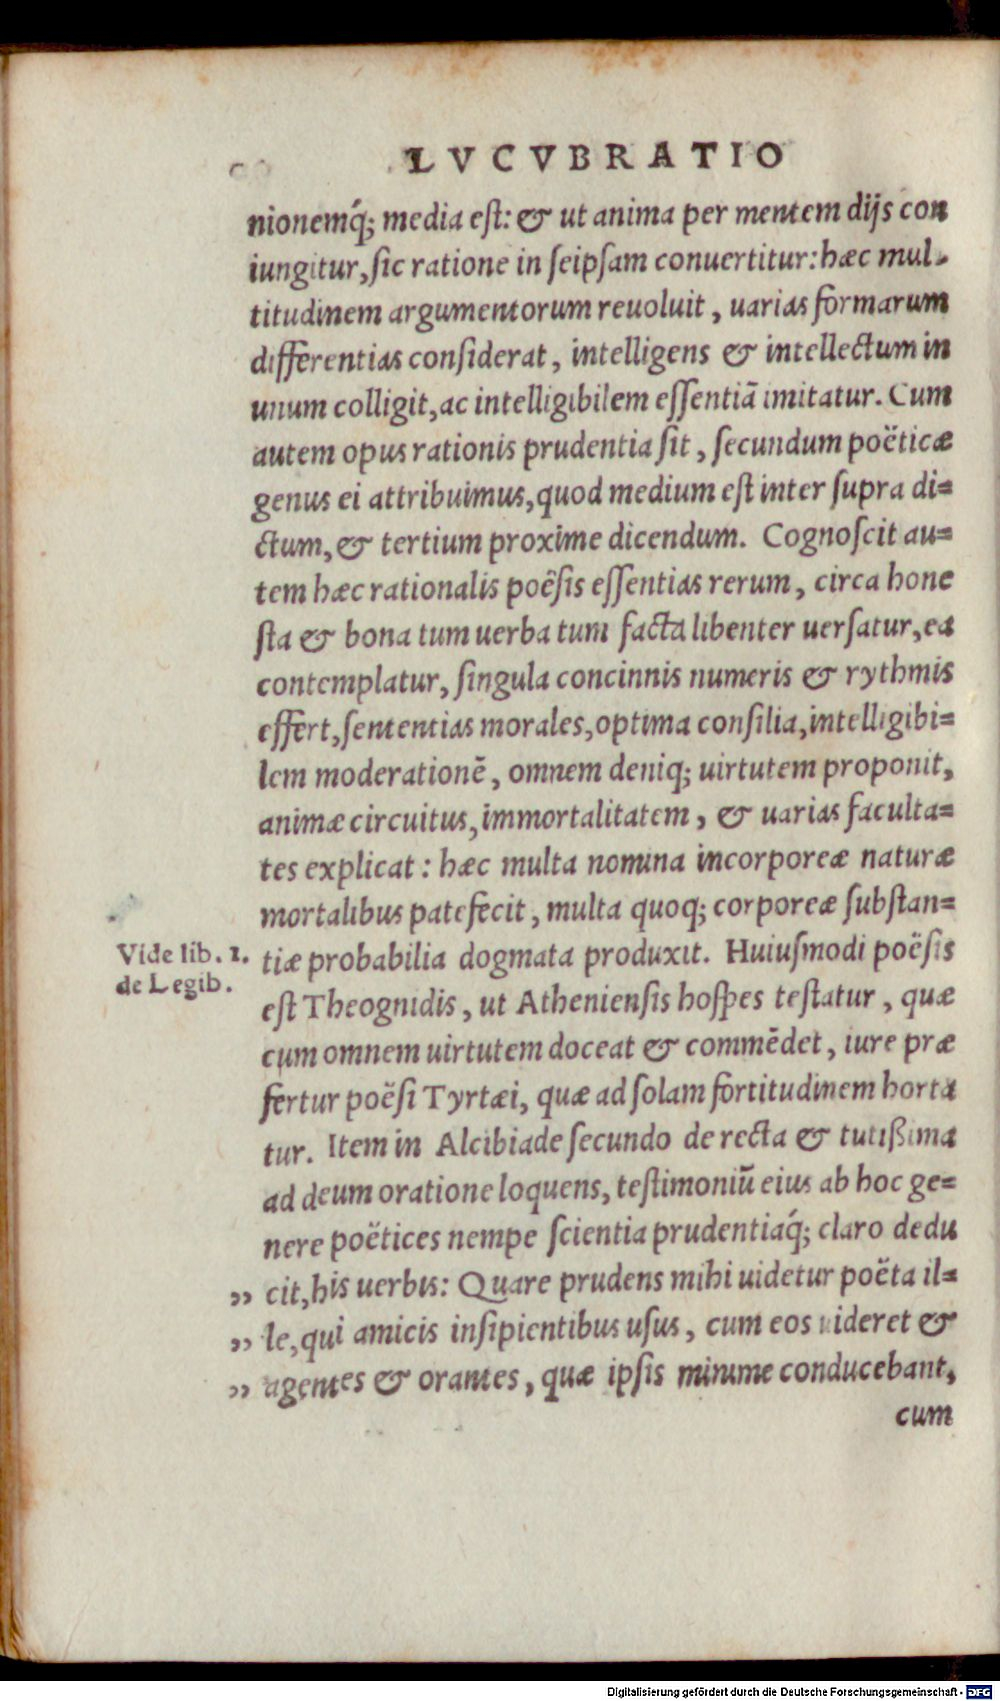 LVCVBRATIO
nionemq́; media est: & ut anima per mentem dijs con
iungitur, sic ratione in seipsam conuertitur: hæc mul-
titudinem argumentorum reuoluit, uarias formarum
differentias considerat, intelligens & intellectum in
unum colligit, ac intelligibilem essentiã imitatur. Cum
autem opus rationis prudentia sit, secundum poëticæ
genus ei attribuimus, quod medium est inter supra di=
ctum, & tertium proxime dicendum. Cognoscit au=
tem hæc rationalis poësis essentias rerum, circa hone
sta & bona tum uerba tum facta libenter uersatur, ea
contemplatur, singula concinnis numeris & rythmis
effert, sententias morales, optima consilia, intelligibi=
lem moderationẽ, omnem deniq; uirtutem proponit,
animæ circuitus, immortalitatem, & uarias faculta=
tes explicat: hæc multa nomina incorporeæ naturæ
mortalibus patefecit, multa quoq; corporeæ substan=
Vide lib. 1.
de Legib.
tiæ probabilia dogmata produxit. Huiusmodi poësis
est Theognidis, ut Atheniensis hospes testatur, quæ
cum omnem uirtutem doceat & commẽdet, iure præ
fertur poësi Tyrtæi, quæ ad solam fortitudinem horta
tur. Item in Alcibiade secundo de recta & tutißima
ad deum oratione loquens, testimoniũ eius ab hoc ge=
nere poëtices nempe scientia prudentiaq́; claro dedu
„ cit, his uerbis: Quare prudens mihi uidetur poëta il=
„ le, qui amicis insipientibus usus, cum eos uideret &
„ agentes & orantes, quæ ipsis minime conducebant,
cum
Digitalisierung gefördert durch die Deutsche Forschungsgemeinschaft - DFG